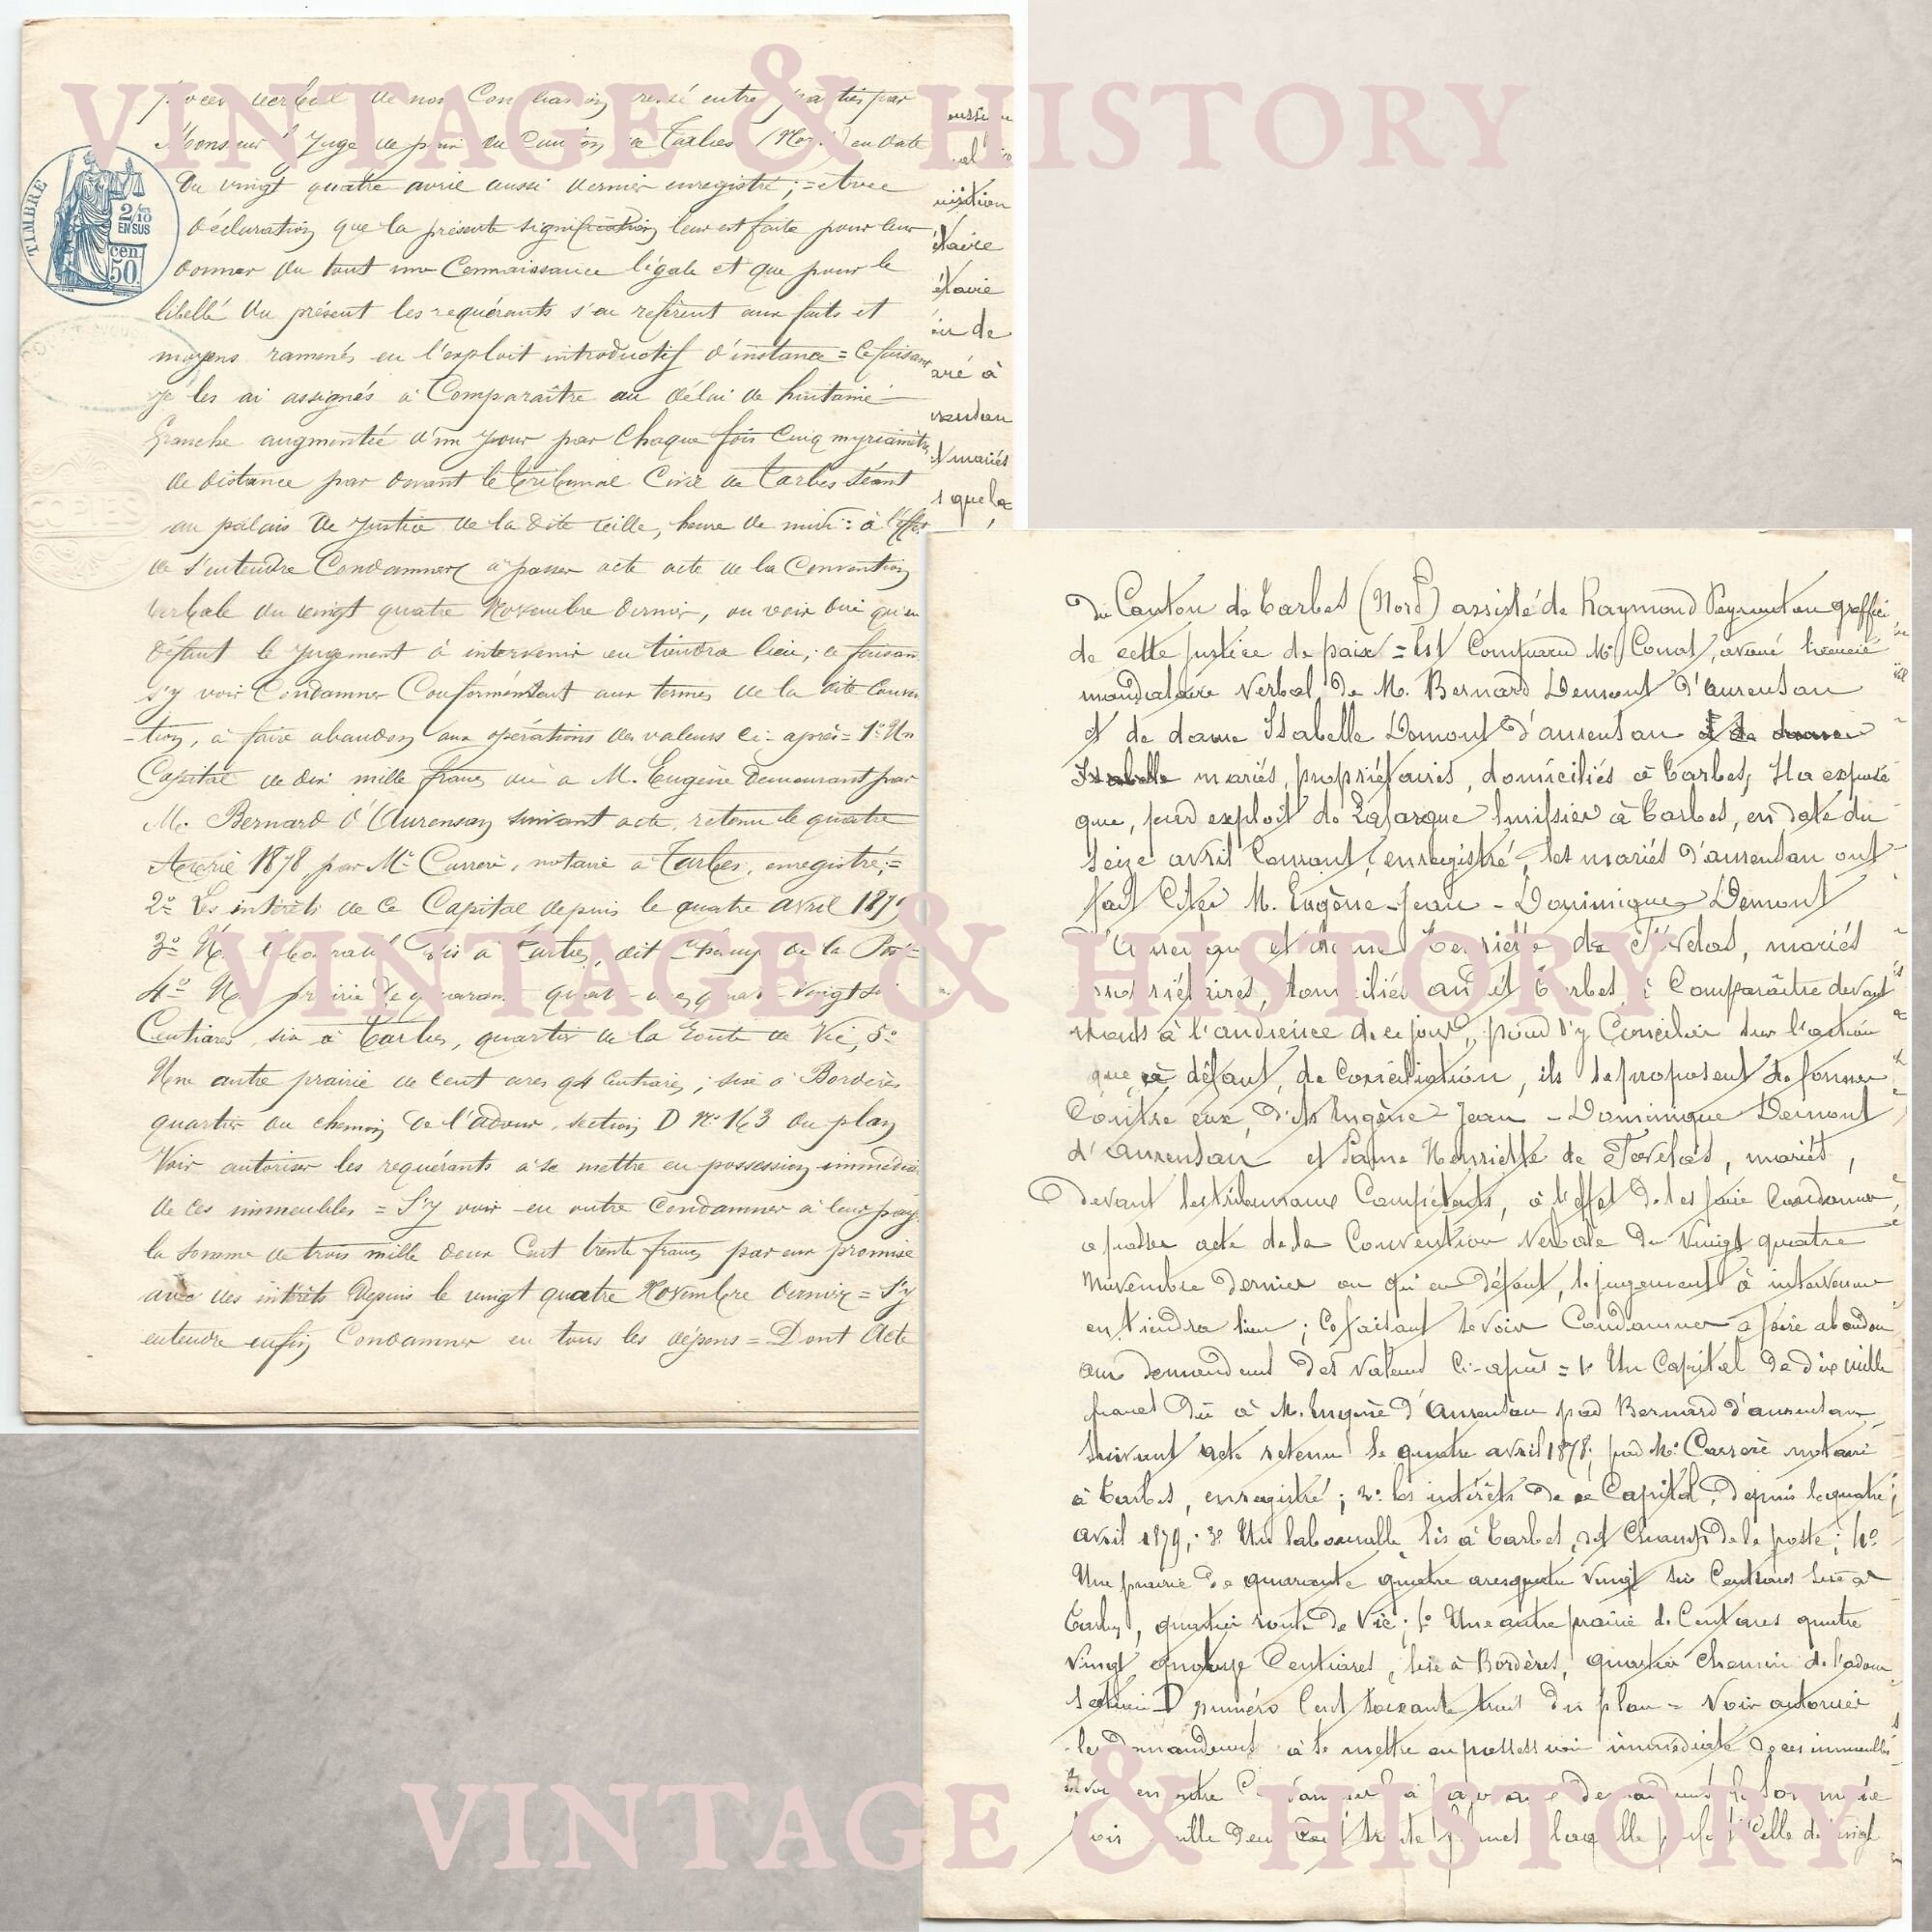 VINTAGE & HISTORY
procès verbal de non Conciliation dressé entre parties par
Monsieur le Juge de paix du Canton de Tarbes (Nord) en date
du vingt quatre avril aussi dernier enregistré ; = et avec
déclaration que la présente signification leur est faite pour leur
donner du tout une Connaissance légale et que pour le
libellé du présent les requérants s'en réfèrent aux faits et
moyens ramenés en l'exploit introductif d'instance = Ce faisant
je les ai assignés à Comparaître au délai de huitaine
franche augmentée d'un jour par Chaque fois Cinq myriamètres
de distance par devant le tribunal Civil de Tarbes Séant
au palais de Justice de la dite ville, heure de midi : à l'effet
de s'entendre Condamner à passer acte acte de la Convention
verbale du vingt quatre Novembre dernier, ou voir dire qu'en
défaut le jugement à intervenir en tiendra lieu ; ce faisant
s'y voir Condamner Conformément aux termes de la dite Conven
-tion, à faire abandon aux des valeurs Ci-après = 1° Un
Capital de dix mille francs dû à M. Eugène par
M. Bernard d'Aurensan suivant acte, retenu le quatre
Avril 1878, par Me Carrère, notaire à Tarbes, enregistré ; =
2° Les intérêts de Ce Capital depuis le quatre avril 1879
3° Un labourable sis à Tarbes, dit Champ de la Poste
4° Une prairie de quarante quatre ares quatre vingt six
Centiares, sise à Tarbes, quartier de la Route de Vic, 5°
Une autre prairie de Cent ares 94 Centiares ; sise à Bordères
quartier du chemin de l'adour, section D N° 163 du plan
Voir autoriser les requérants à se mettre en possession immédiate
de ces immeubles = S'y voir en outre Condamner à leur payer
la somme de trois mille deux Cent trente francs par eux promise
avec les intérêts depuis le vingt quatre Novembre dernier = S'y
entendre enfin Condamner en tous les dépens = Dont Acte
TIMBRE
2/10
EN SUS
50 cen
quition
étaire
in de
aré à
mariés
s que la
du Canton de Tarbes (Nord) assisté de Raymond greffier
de cette justice de paix = Est Comparu Me Conat, avoué licencié
mandataire verbal de M. Bernard Demont d'aurensan
et de dame Isabelle Demont d'aurensan et de dame
Isabelle mariés, propriétaires, domiciliés à Tarbes, Il a exposé
que, par exploit de Lafargue huissier à Tarbes, en date du
seize avril Courant, enregistré, les mariés d'aurensan ont
fait Citer M. Eugène-Jean-Dominique Demont
d'Aurensan et dame Henriette de mariés
propriétaires, domiciliés au dit Tarbes à Comparaître devant
nous à l'audience de ce jour, pour s'y Concilier sur l'action
que, à défaut de Conciliation, ils se proposent de former
Contre eux, dits Eugène-Jean-Dominique Demont
d'aurensan et Dame Henriette de mariés,
devant les tribunaux Compétents, à l'effet de les faire Condamner
à passer acte de la Convention Verbale du Vingt quatre
Novembre dernier ou qu'en défaut, le jugement à intervenir
en tiendra lieu ; Ce faisant se voir Condamner à faire abandon
aux demandeurs des valeurs Ci-après = 1° Un Capital de dix mille
francs dû à M. Eugène d'Aurensan par Bernard d'aurensan
suivant acte retenu le quatre avril 1878, par Me Carrère notaire
à Tarbes, enregistré ; 2° les intérêts de ce Capital, depuis le quatre
avril 1879 ; 3° Un labourable sis à Tarbes, dit Champ de la poste ; 4°
Une prairie de quarante quatre ares quatre vingt six Centiares sise à
Tarbes, quartier route de Vic ; 5° Une autre prairie de Cent ares quatre
vingt quatorze Centiares, sise à Bordères, quartier Chemin de l'adour
section D numéro Cent soixante trois du plan = Voir autoriser
les demandeurs à se mettre en possession immédiate de ces immeubles
S'y voir en outre Condamner à payer aux demandeurs la somme de
trois mille deux Cent trente francs laquelle Celle de vingt
VINTAGE & HISTORY
VINTAGE & HISTORY